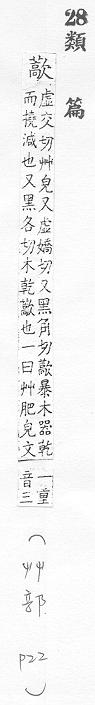 28類篇
藃
虛交切艸皃又虛嬌切又黑角切藃暴木器乾
而橈減也又黑各切木乾藃也一曰艸肥皃文
一
重
音三
(艸部
P22)